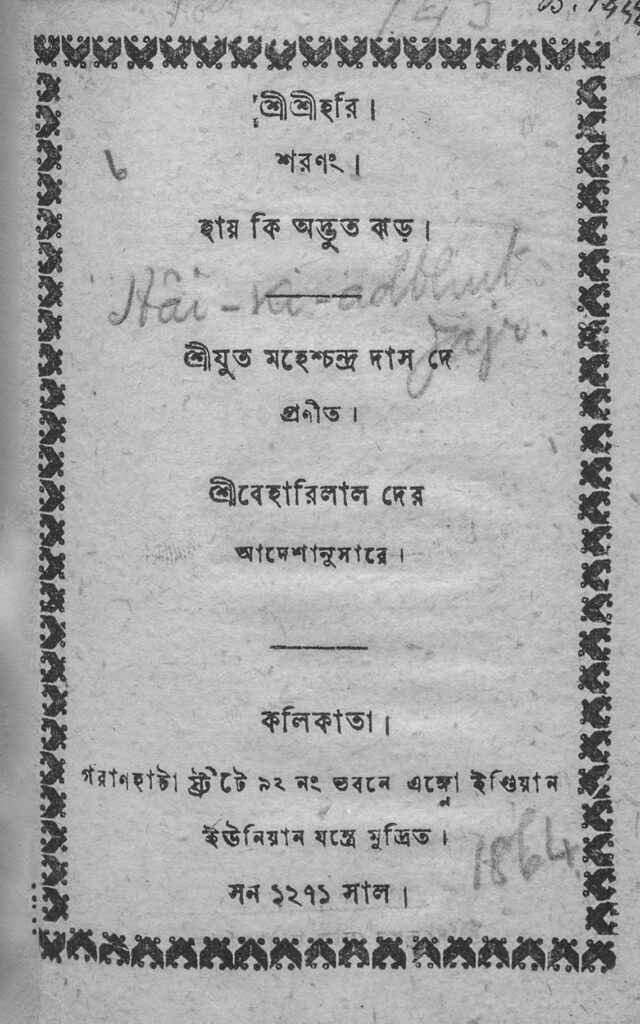 শ্রীশ্রীহরি।
শরণং।
হায় কি অদ্ভুত ঝড়।
Hâi-ki-adbhut
jhajr.
শ্রীযুত মহেশ্চন্দ্র দাস দে
প্রণীত।
শ্রীবেহারিলাল দের
আদেশানুসারে।
কলিকাতা।
গরাণহাটা ষ্ট্রীটে ৯২ নং ভবনে এঙ্গ্লো ইণ্ডিয়ান
ইউনিয়ান যন্ত্রে মুদ্রিত।
1864
সন ১২৭১ সাল।